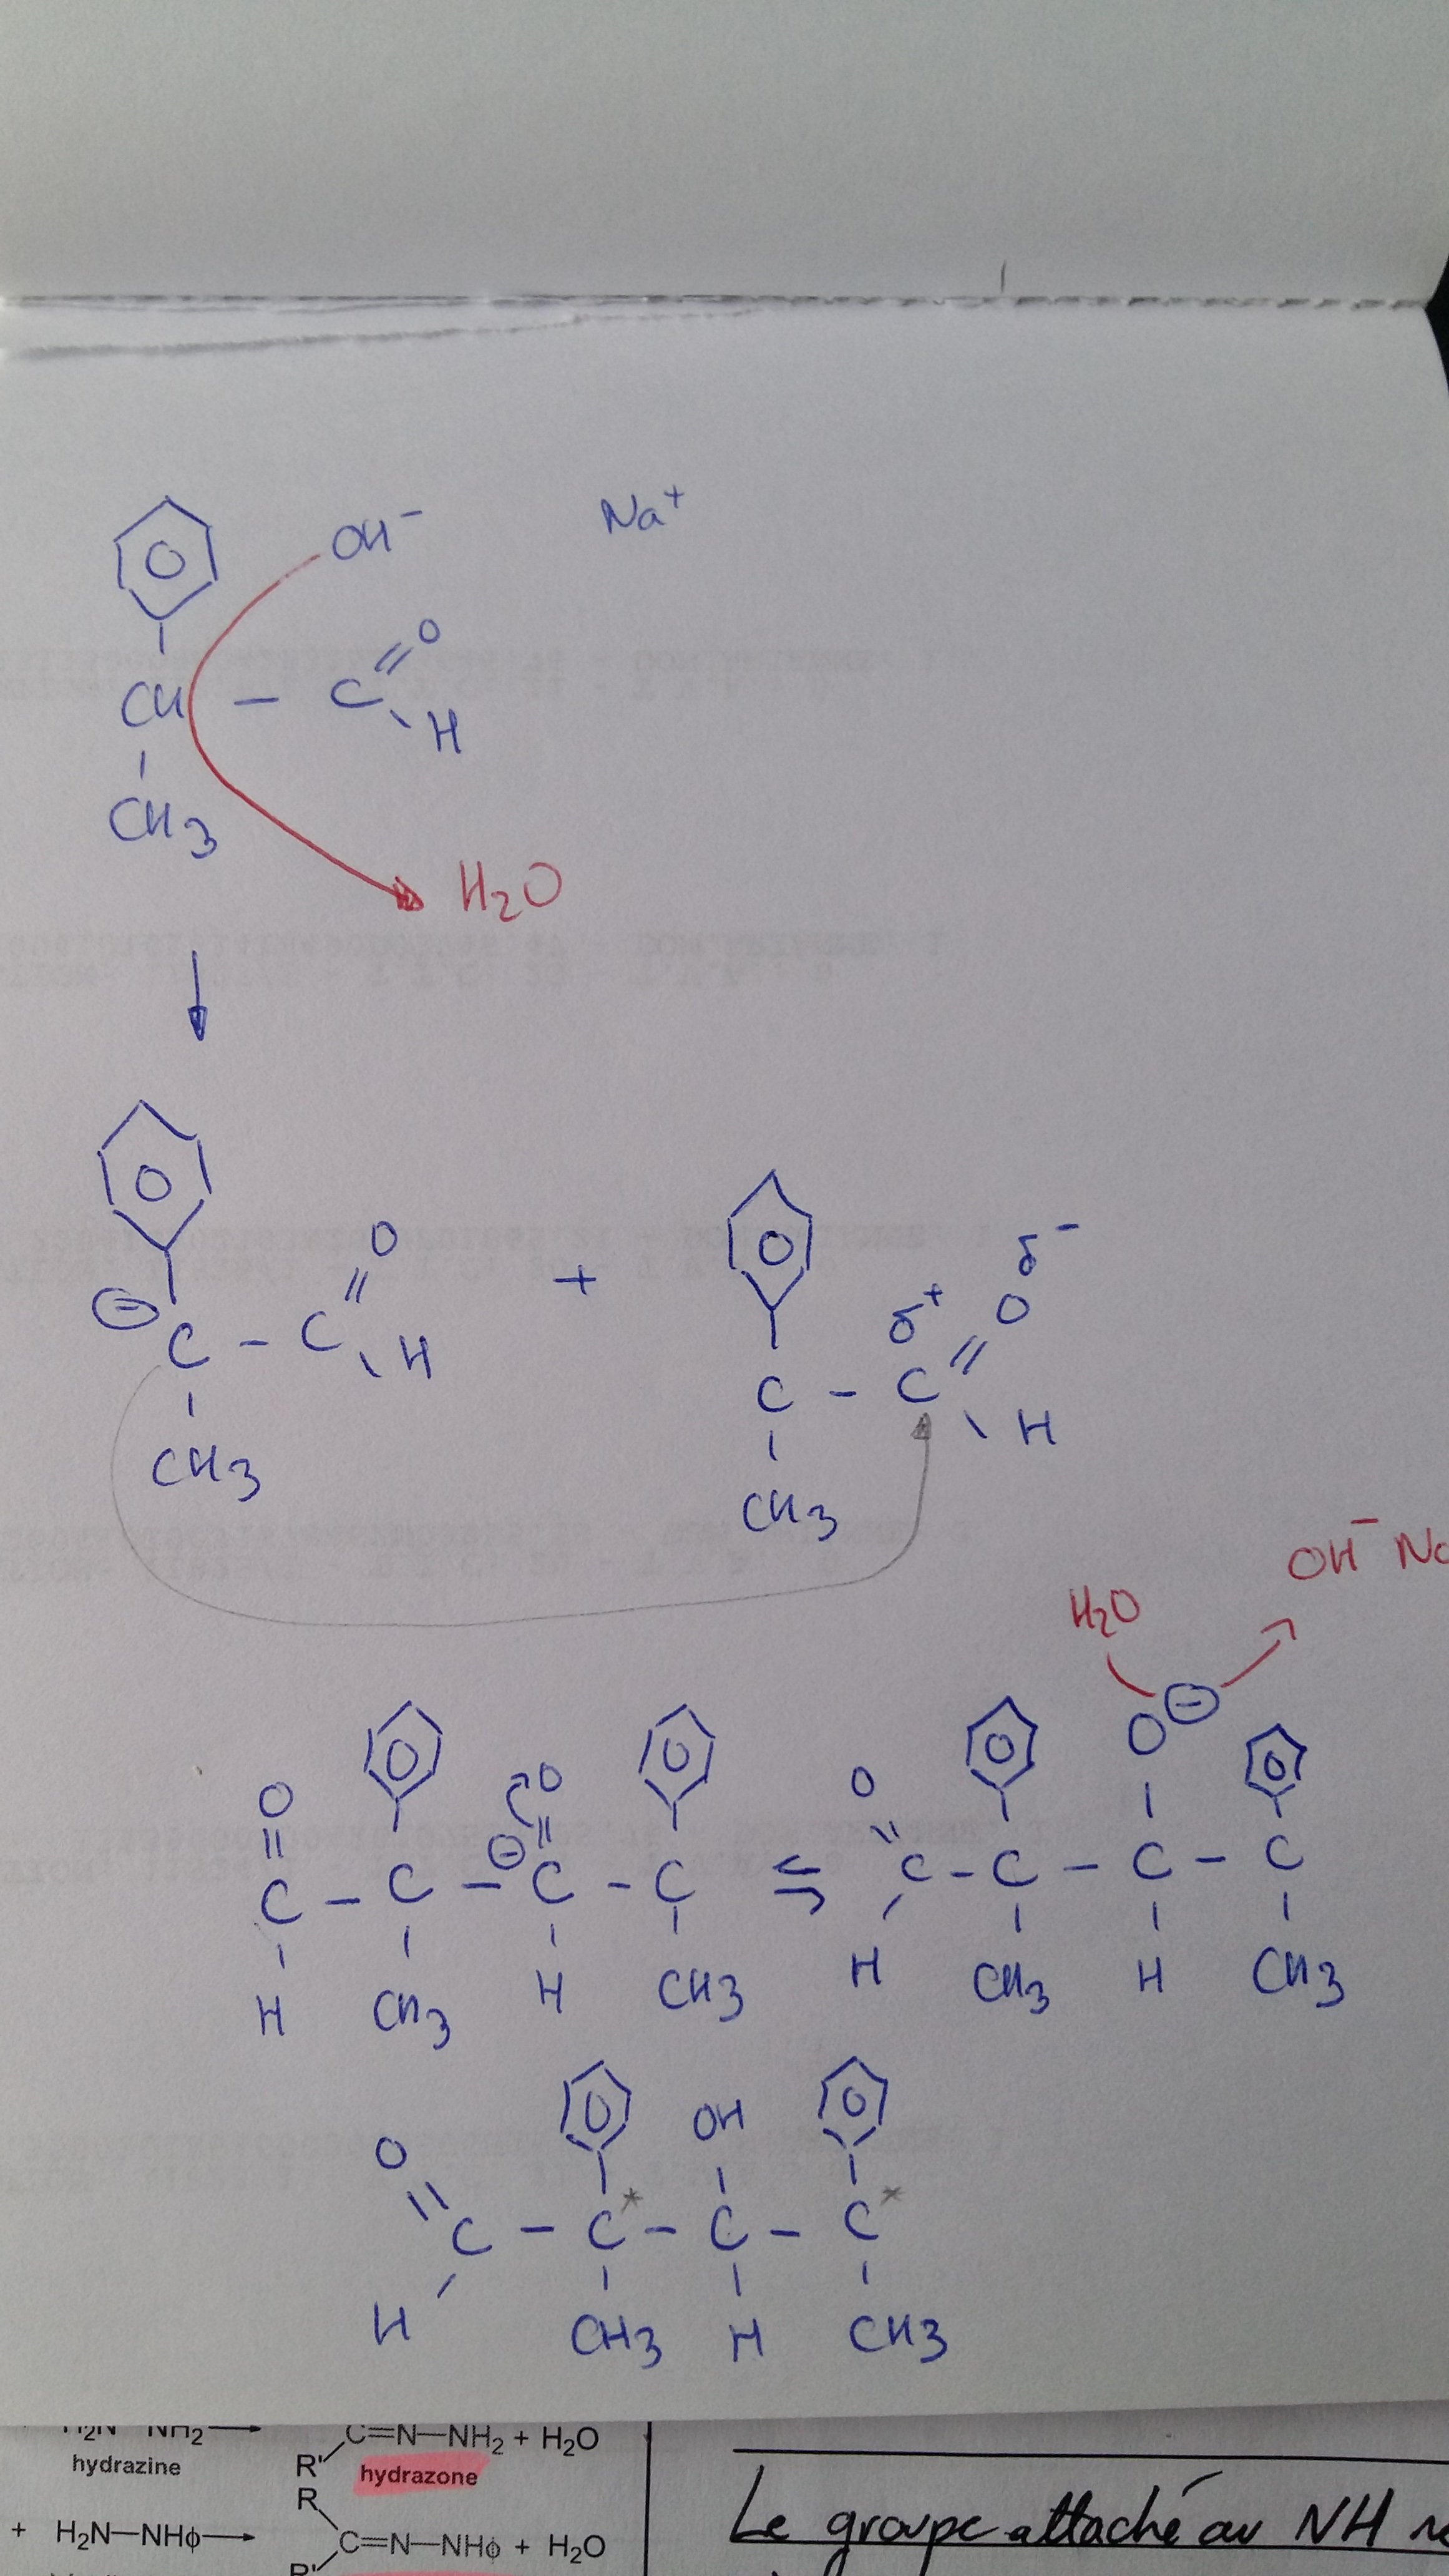 OH⁻ Na⁺
O
CH - C
H
CH3
H2O
O
⊖ C - C
H
CH3
+
δ+ δ-
O
C - C
H
CH3
OH⁻ Na
H2O
O O
C - C - ⊖ C - C
H CH3 H CH3
⇌
O O ⊖
C - C - C - C
H CH3 H CH3
O OH
C - C* - C - C*
H CH3 H CH3
H2N NH2 → C=N—NH2 + H2O
hydrazine R' hydrazone
R
+ H2N—NHϕ → C=N—NHϕ + H2O
R'
Le groupe attaché au NH